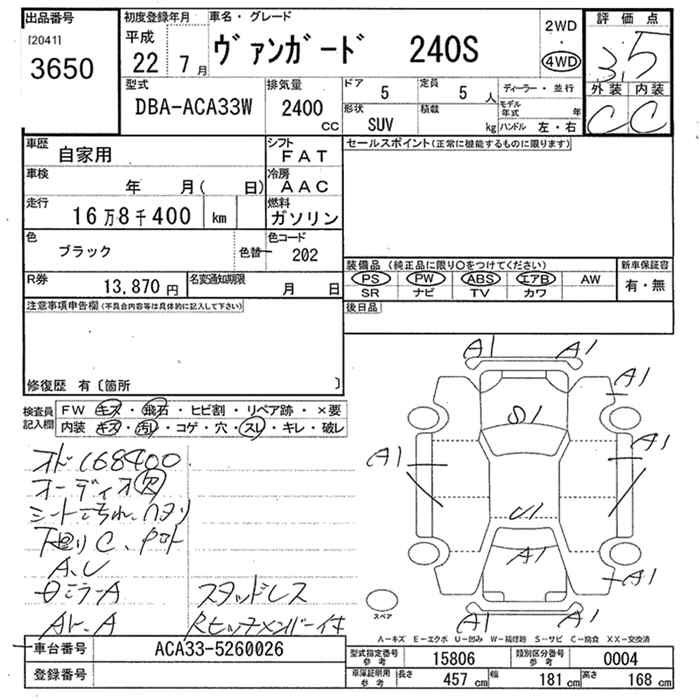 出品番号
[2041]
3650
初度登録年月
平成
22 7月
車名・グレード
ヴァンガード 240S
2WD
・
4WD
評価点
3.5
外装 内装
C C
型式
DBA-ACA33W
排気量
2400
cc
ドア
5
定員
5 人
形状
SUV
積載
kg
ディーラー・並行
モデル年式 年
ハンドル 左・右
車歴
自家用
シフト
FAT
車検
年 月( 日)
冷房
AAC
走行
16万8千400 km
燃料
ガソリン
色
ブラック
色替
色コード
202
R券
13,870 円
名変通知期限
月 日
セールスポイント(正常に機能するものに限ります)
装備品 (純正品に限り〇をつけてください)
PS PW ABS エアB AW
SR ナビ TV カワ
新車保証書
有・無
後日品
注意事項申告欄(不具合内容等は具体的に記入して下さい)
修復歴 有〔箇所 〕
検査員記入欄
FW キズ・飛石・ヒビ割・リペア跡・×要
内装 キズ・汚レ・コゲ・穴・スレ・キレ・破レ
オド168400
オーディオ欠
下廻りC、
A、U
ミラーA
A
スタッドレス
Rヒッチメンバー付
A1 A1
A1
S1
A1
A1
U1
A1
A1
A1 A1
スペア
A-キズ E-エクボ U-凹み W-補修跡 S-サビ C-腐食 XX-交換済
車台番号
ACA33-5260026
登録番号
型式指定番号
参考
15806
類別区分番号
参考
0004
車庫証明用
参考
長さ
457 cm
幅
181 cm
高さ
168 cm